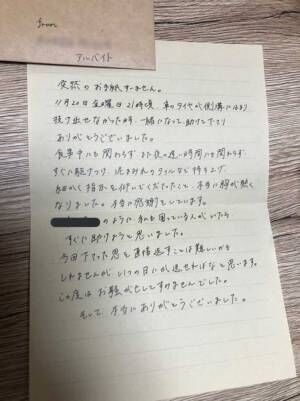 from
アルバイト
突然のお手紙すいません。
11月20日 金曜日 21時頃 車のタイヤが側溝にはまり
抜け出せなかった時、一緒になって助けて下さり
ありがとうございました。
食事中にも関わらず また夜の遅い時間にも関わらず
すぐに駆けつけ 泥まみれのタイルなど持ち上げ
細かく指示を出していただいたこと、本当に胸が熱く
なりました。本当に感謝をしています。
のように私も困っている人がいたら
すぐに助けようと思いました。
今回下さった恩を直接返すことは難しいかも
しれませんが いつの日にか返せればなと思います。
この度はお騒がせしてすみませんでした。
そして、本当にありがとうございました。